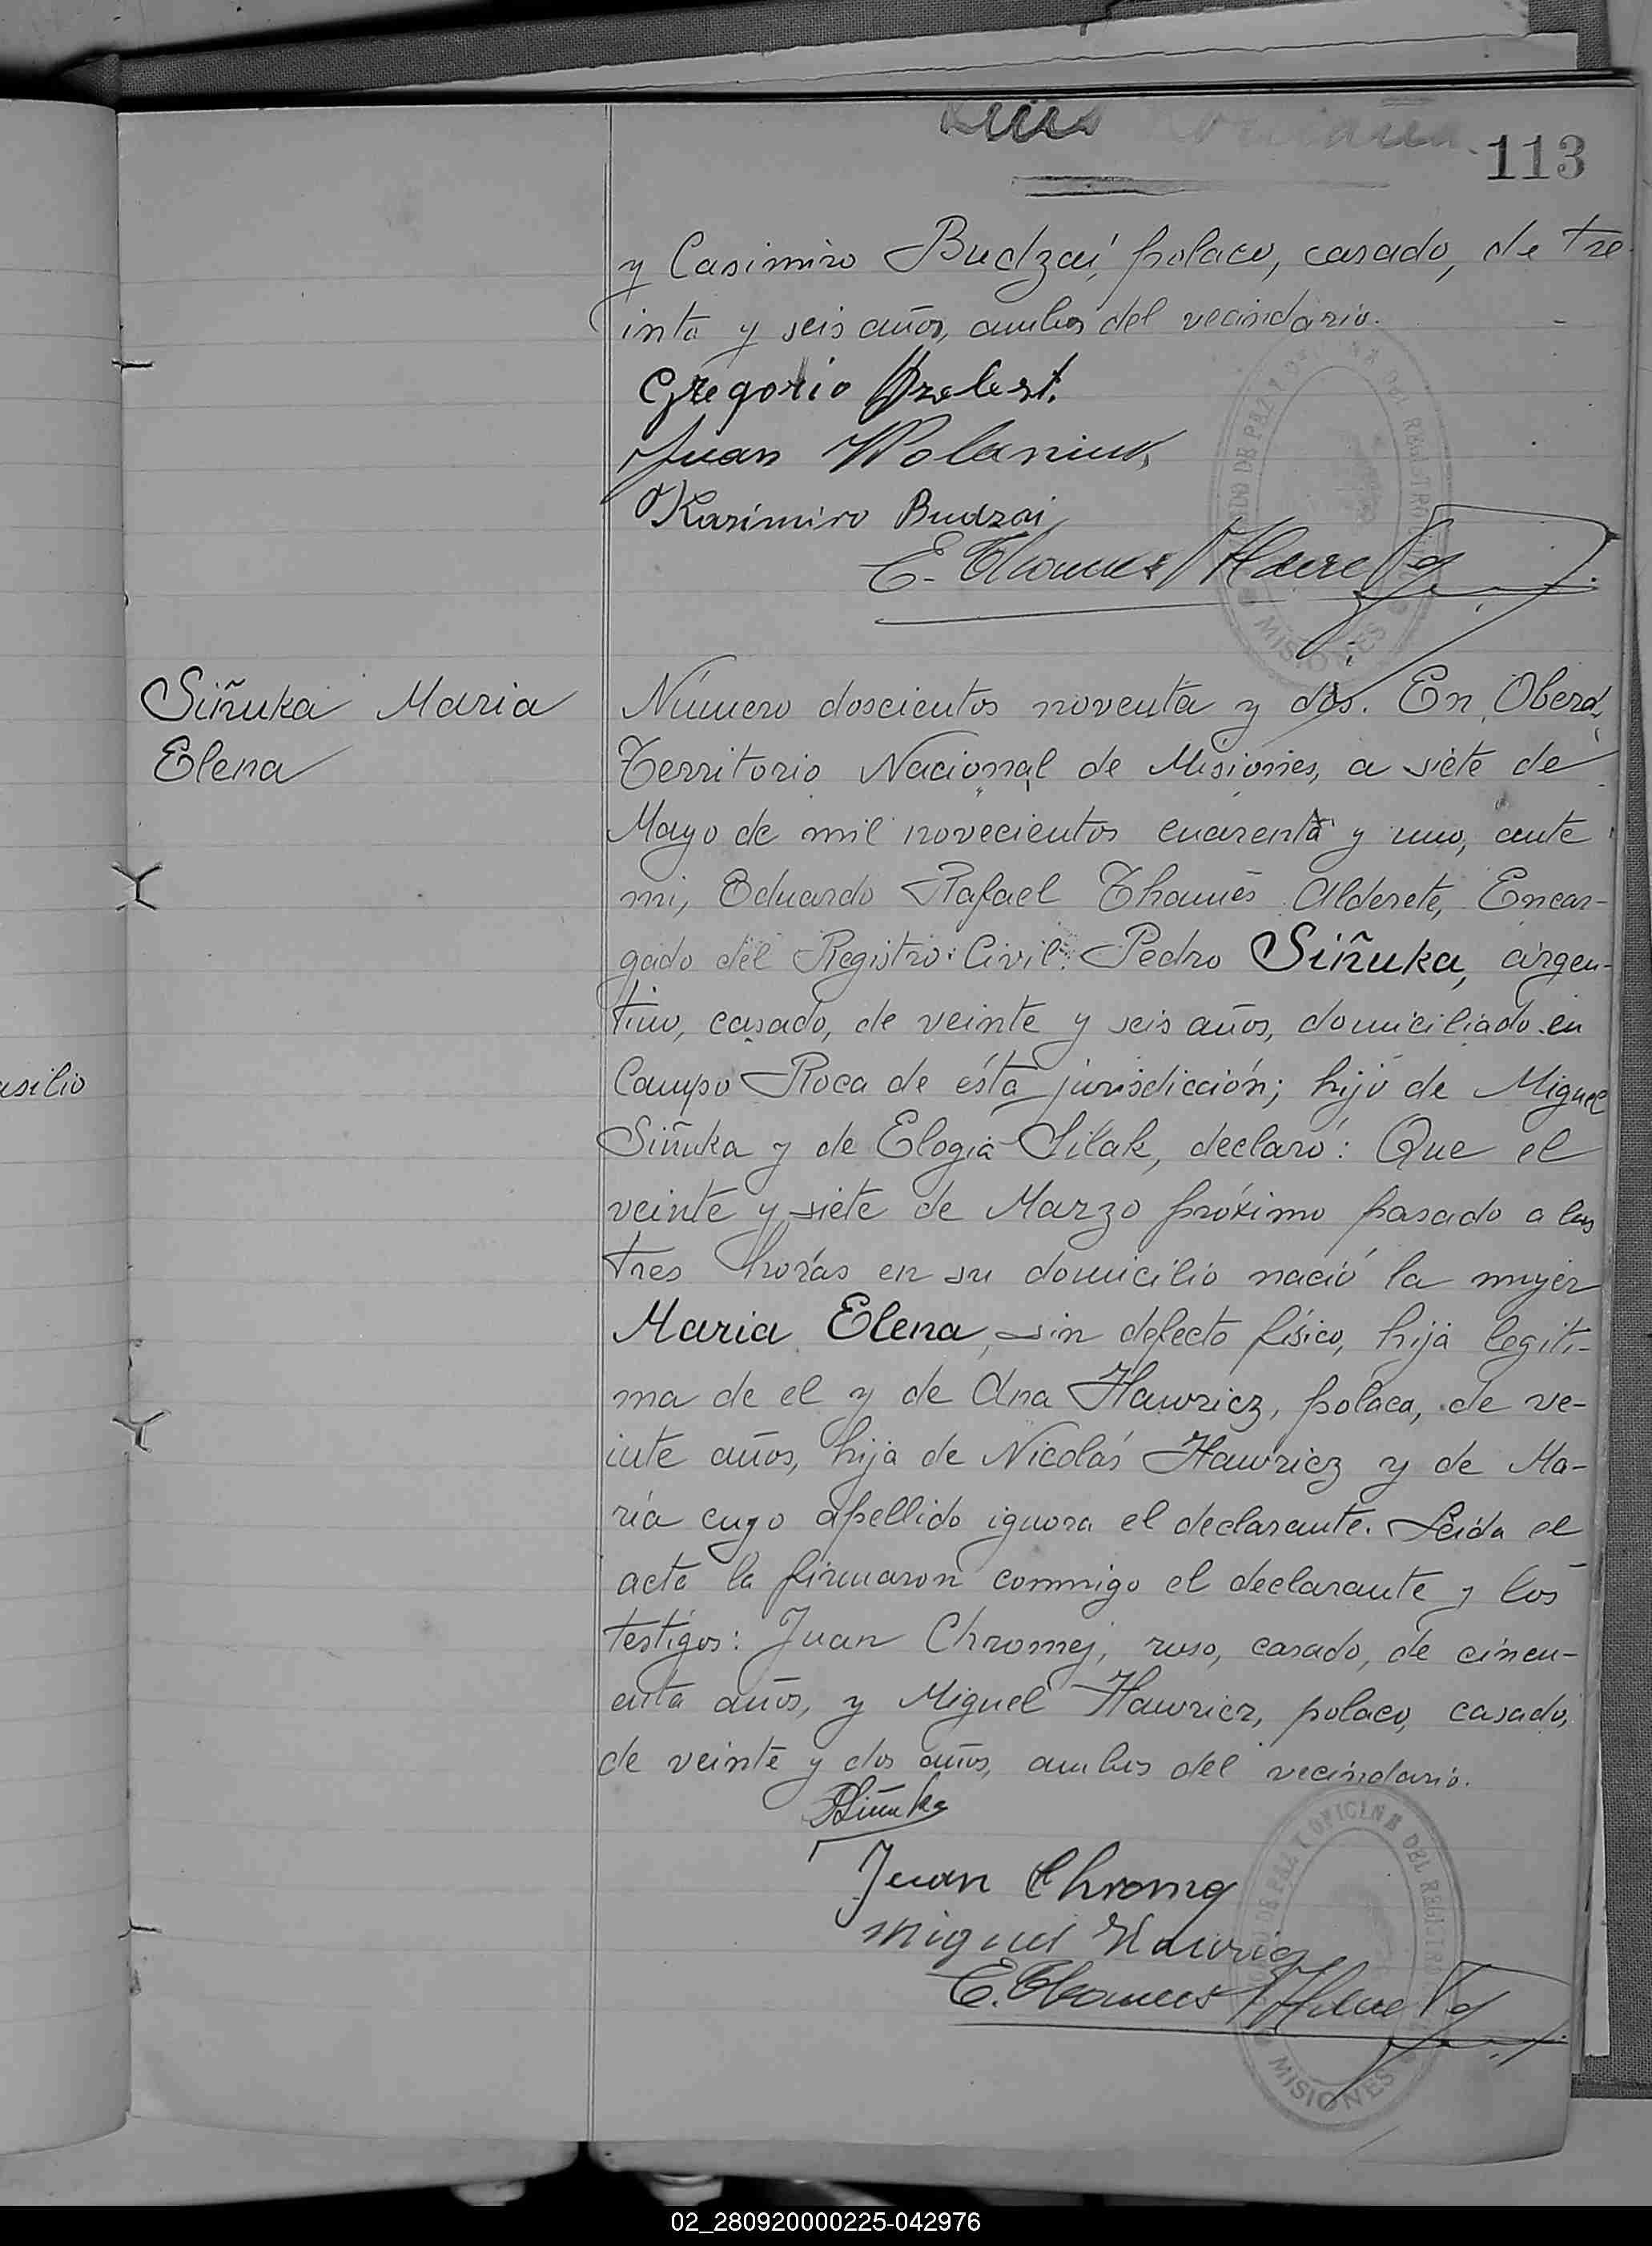 113
y Casimiro Budzai, polaco, casado, de tre-
inta y seis años, ambos del vecindario.
Gregorio
Juan Wolaniuk
Kazimiro Budzai
E. Thames Alderete
JUZGADO DE PAZ Y OFICINA DEL REGISTRO CIVIL
MISIONES
Siñuka Maria
Elena
Número doscientos noventa y dos. En Oberá,
Territorio Nacional de Misiones, a siete de
Mayo de mil novecientos cuarenta y uno, ante
mi, Eduardo Rafael Thamés Alderete, Encar-
gado del Registro Civil: Pedro Siñuka, argen-
tino, casado, de veinte y seis años, domiciliado en
asilio
Campo Roca de ésta jurisdicción; hijo de Miguel
Siñuka y de Elogia Silak, declaró: Que el
veinte y siete de Marzo próximo pasado a las
tres horas en su domicilio nació la mujer
Maria Elena, sin defecto físico, hija legiti-
ma de el y de Ana Hawricz, polaca, de ve-
inte años, hija de Nicolás Hawricz y de Ma-
ría cuyo apellido ignora el declarante. Leída el
acta la firmaron conmigo el declarante y los
testigos: Juan Chromej, ruso, casado, de cincu-
enta años, y Miguel Hawricz, polaco, casado,
de veinte y dos años, ambos del vecindario.
PSiñuka
Juan Chromej
Miguel Hawricz
E. Thames Alderete
JUZGADO DE PAZ Y OFICINA DEL REGISTRO CIVIL
MISIONES
02_280920000225-042976